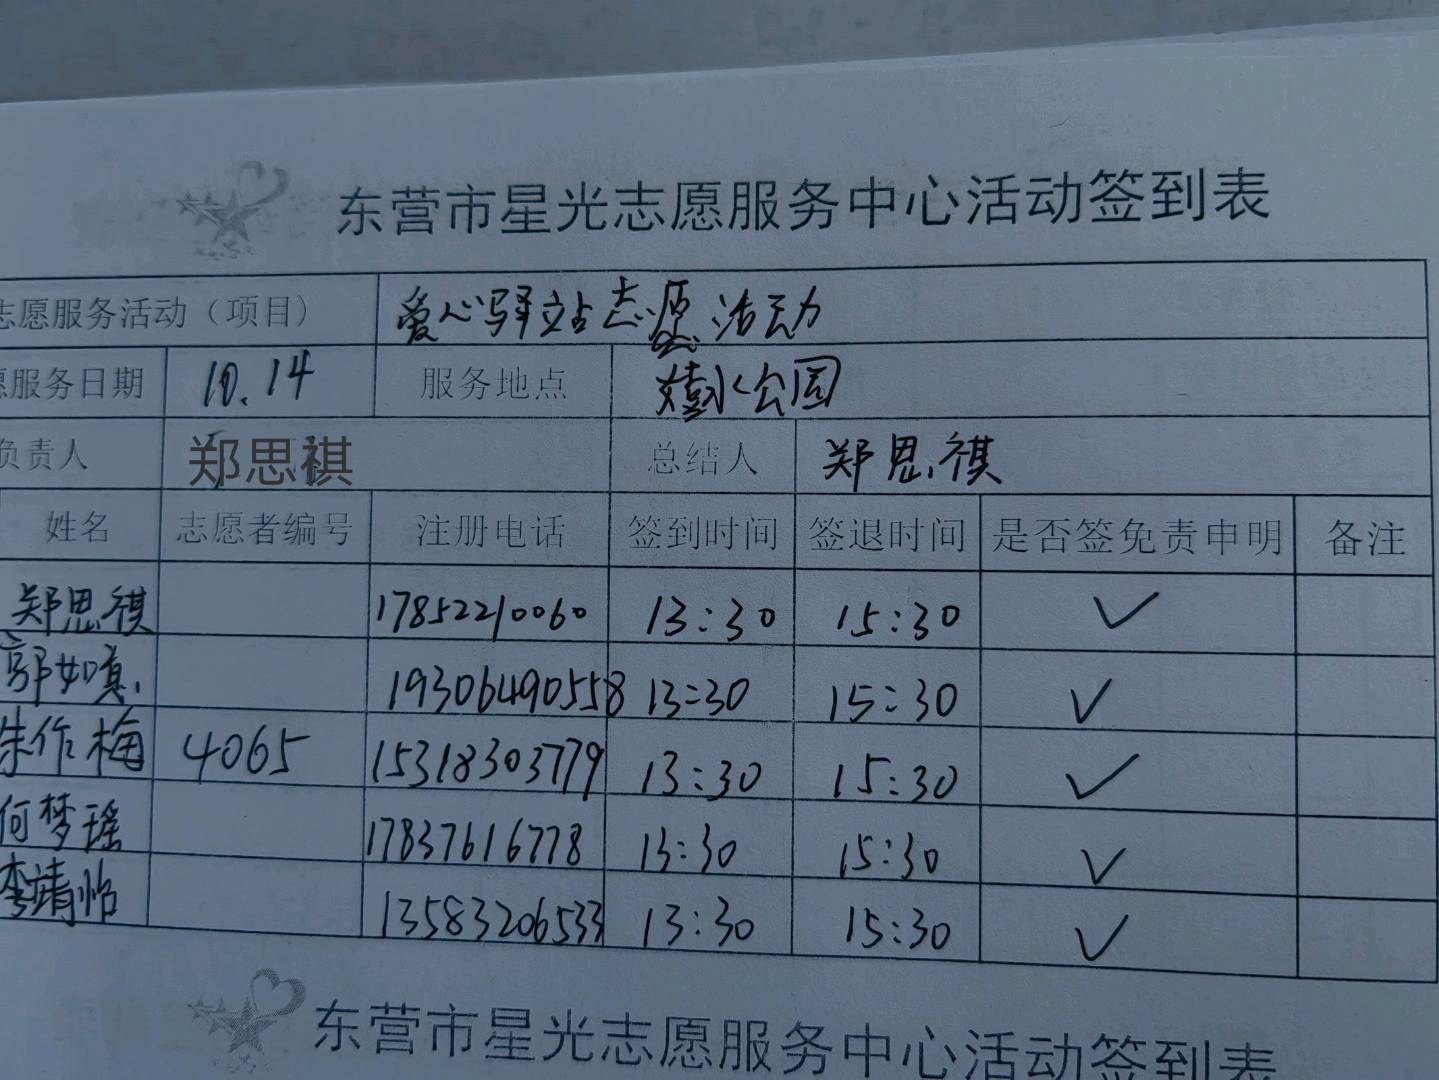 东营市星光志愿服务中心活动签到表
志愿服务活动（项目） 爱心驿站志愿活动
愿服务日期 10.14 服务地点 嬉水公园
负责人 郑思祺 总结人 郑思祺
姓名 志愿者编号 注册电话 签到时间 签退时间 是否签免责申明 备注
郑思祺 17852210060 13:30 15:30 ✓
郭如真 19306490558 13:30 15:30 ✓
朱作梅 4065 15318303779 13:30 15:30 ✓
何梦瑶 17837616778 13:30 15:30 ✓
李靖怡 13583206533 13:30 15:30 ✓
东营市星光志愿服务中心活动签到表